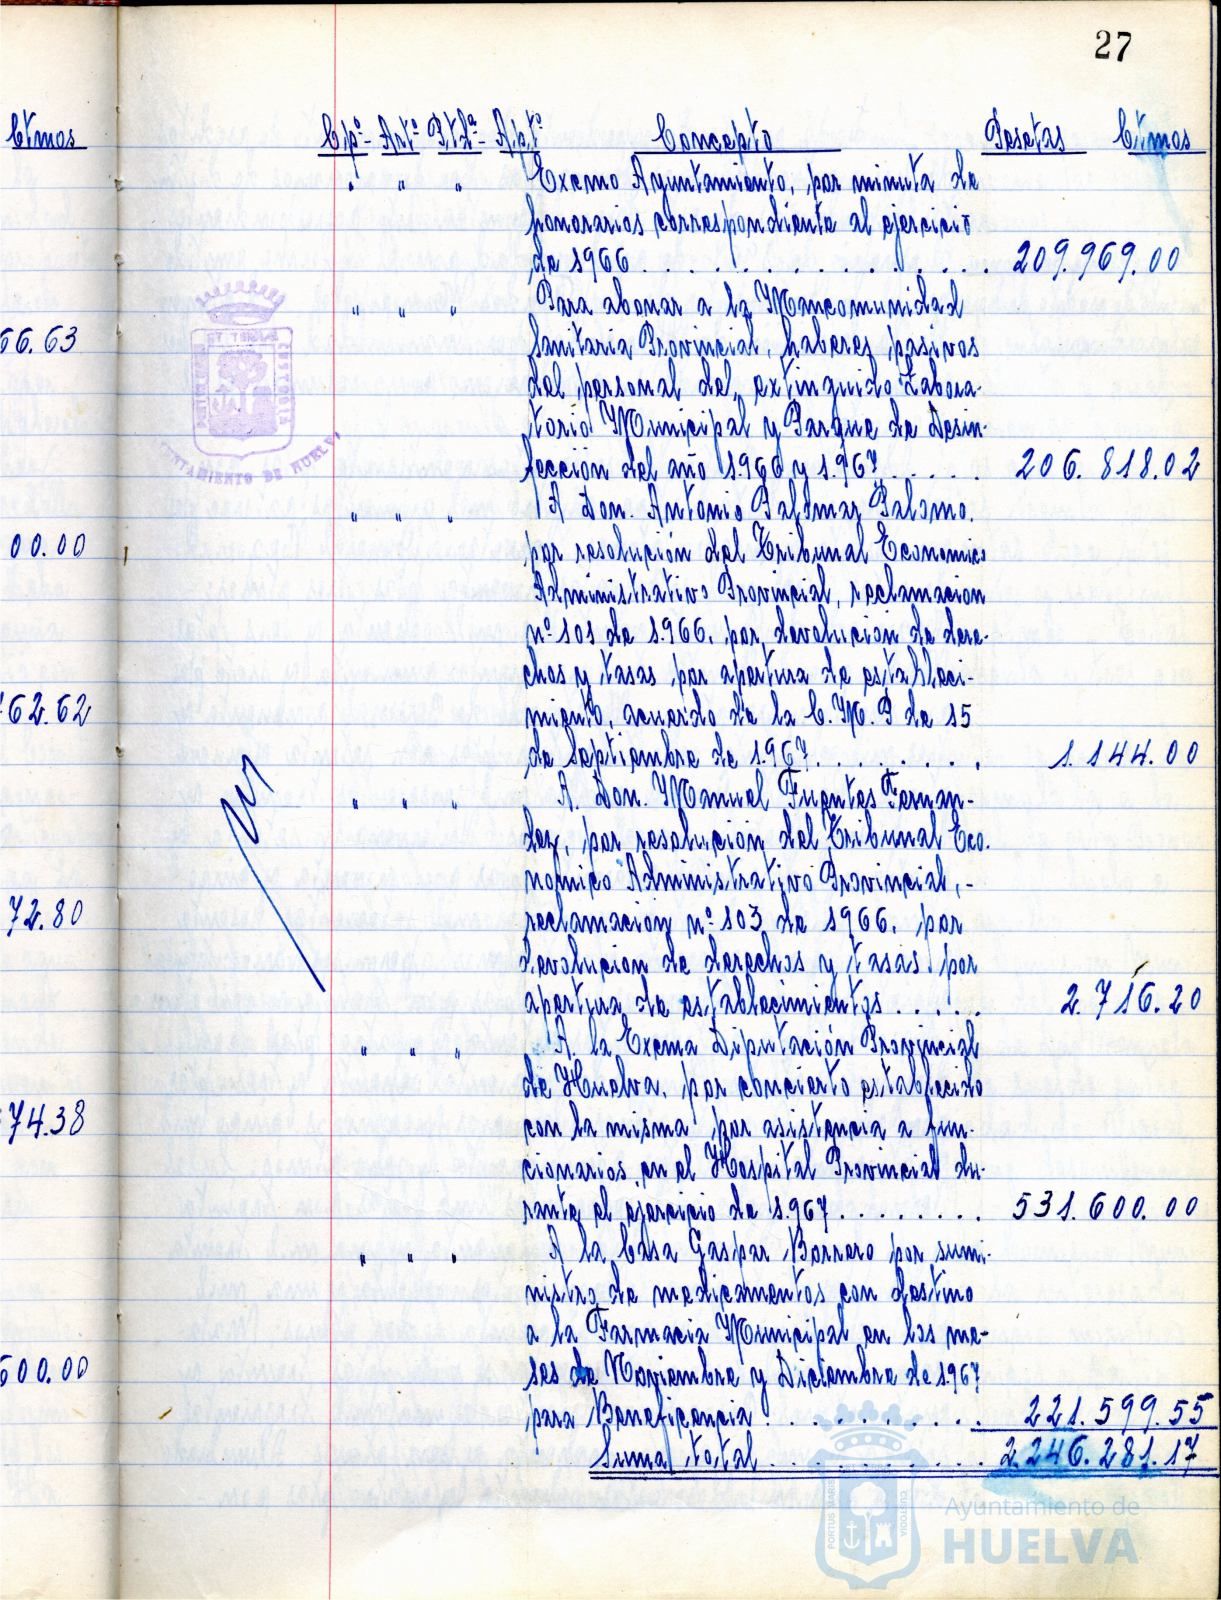 27
Ctmos
66.63
00.00
62.62
72.80
74.38
600.00
Cpº - Artº Ptdª - Aptº Concepto Pesetas Ctmos
" " " Excmo Ayuntamiento, por minuta de
honorarios correspondiente al ejercicio
de 1966 . . . . . . . . . . . . . . 209.969.00
" " " Para abonar a la Mancomunidad
Sanitaria Provincial, haberes pasivos
del personal del, extinguido Labora-
torio Municipal y Parque de Desin-
fección del año 1.966 y 1.967 . . . . . 206.818.02
" " " A Don. Antonio Palomar Palomo.
por resolución del Tribunal Economico
Administrativo Provincial, reclamacion
nº 101 de 1.966, por devolucion de dere-
chos y tasas por apertura de estableci-
miento, acuerdo de la C. M. P de 15
de Septiembre de 1.967 . . . . . . . . 1.144.00
" " " A. Don. Manuel Fuentes Fernan-
dez, por resolución del Tribunal Eco.
nomico Administrativo Provincial, -
reclamación nº 103 de 1966, por
devolucion de derechos y tasas por
apertura de establecimientos . . . . . 2.716.20
" " " A. la Excma Diputación Provincial
de Huelva, por concierto establecido
con la misma por asistencia a fun-
cionarios, en el Hospital Provincial du-
rante el ejercicio de 1.967 . . . . . . . . 531.600.00
" " " A la Casa Gaspar Borrero por sumi-
nistro de medicamentos con destino
a la Farmacia Municipal en los me-
ses de Noviembre y Diciembre de 1.967
para Beneficencia . . . . . . . . . . . 221.599.55
Suma total . . . . . . . . . . . 2.246.281.17
PORTUS MARIS
CUSTODIA
AYUNTAMIENTO DE HUELVA
PORTUS MARIS
CUSTODIA
Ayuntamiento de
HUELVA